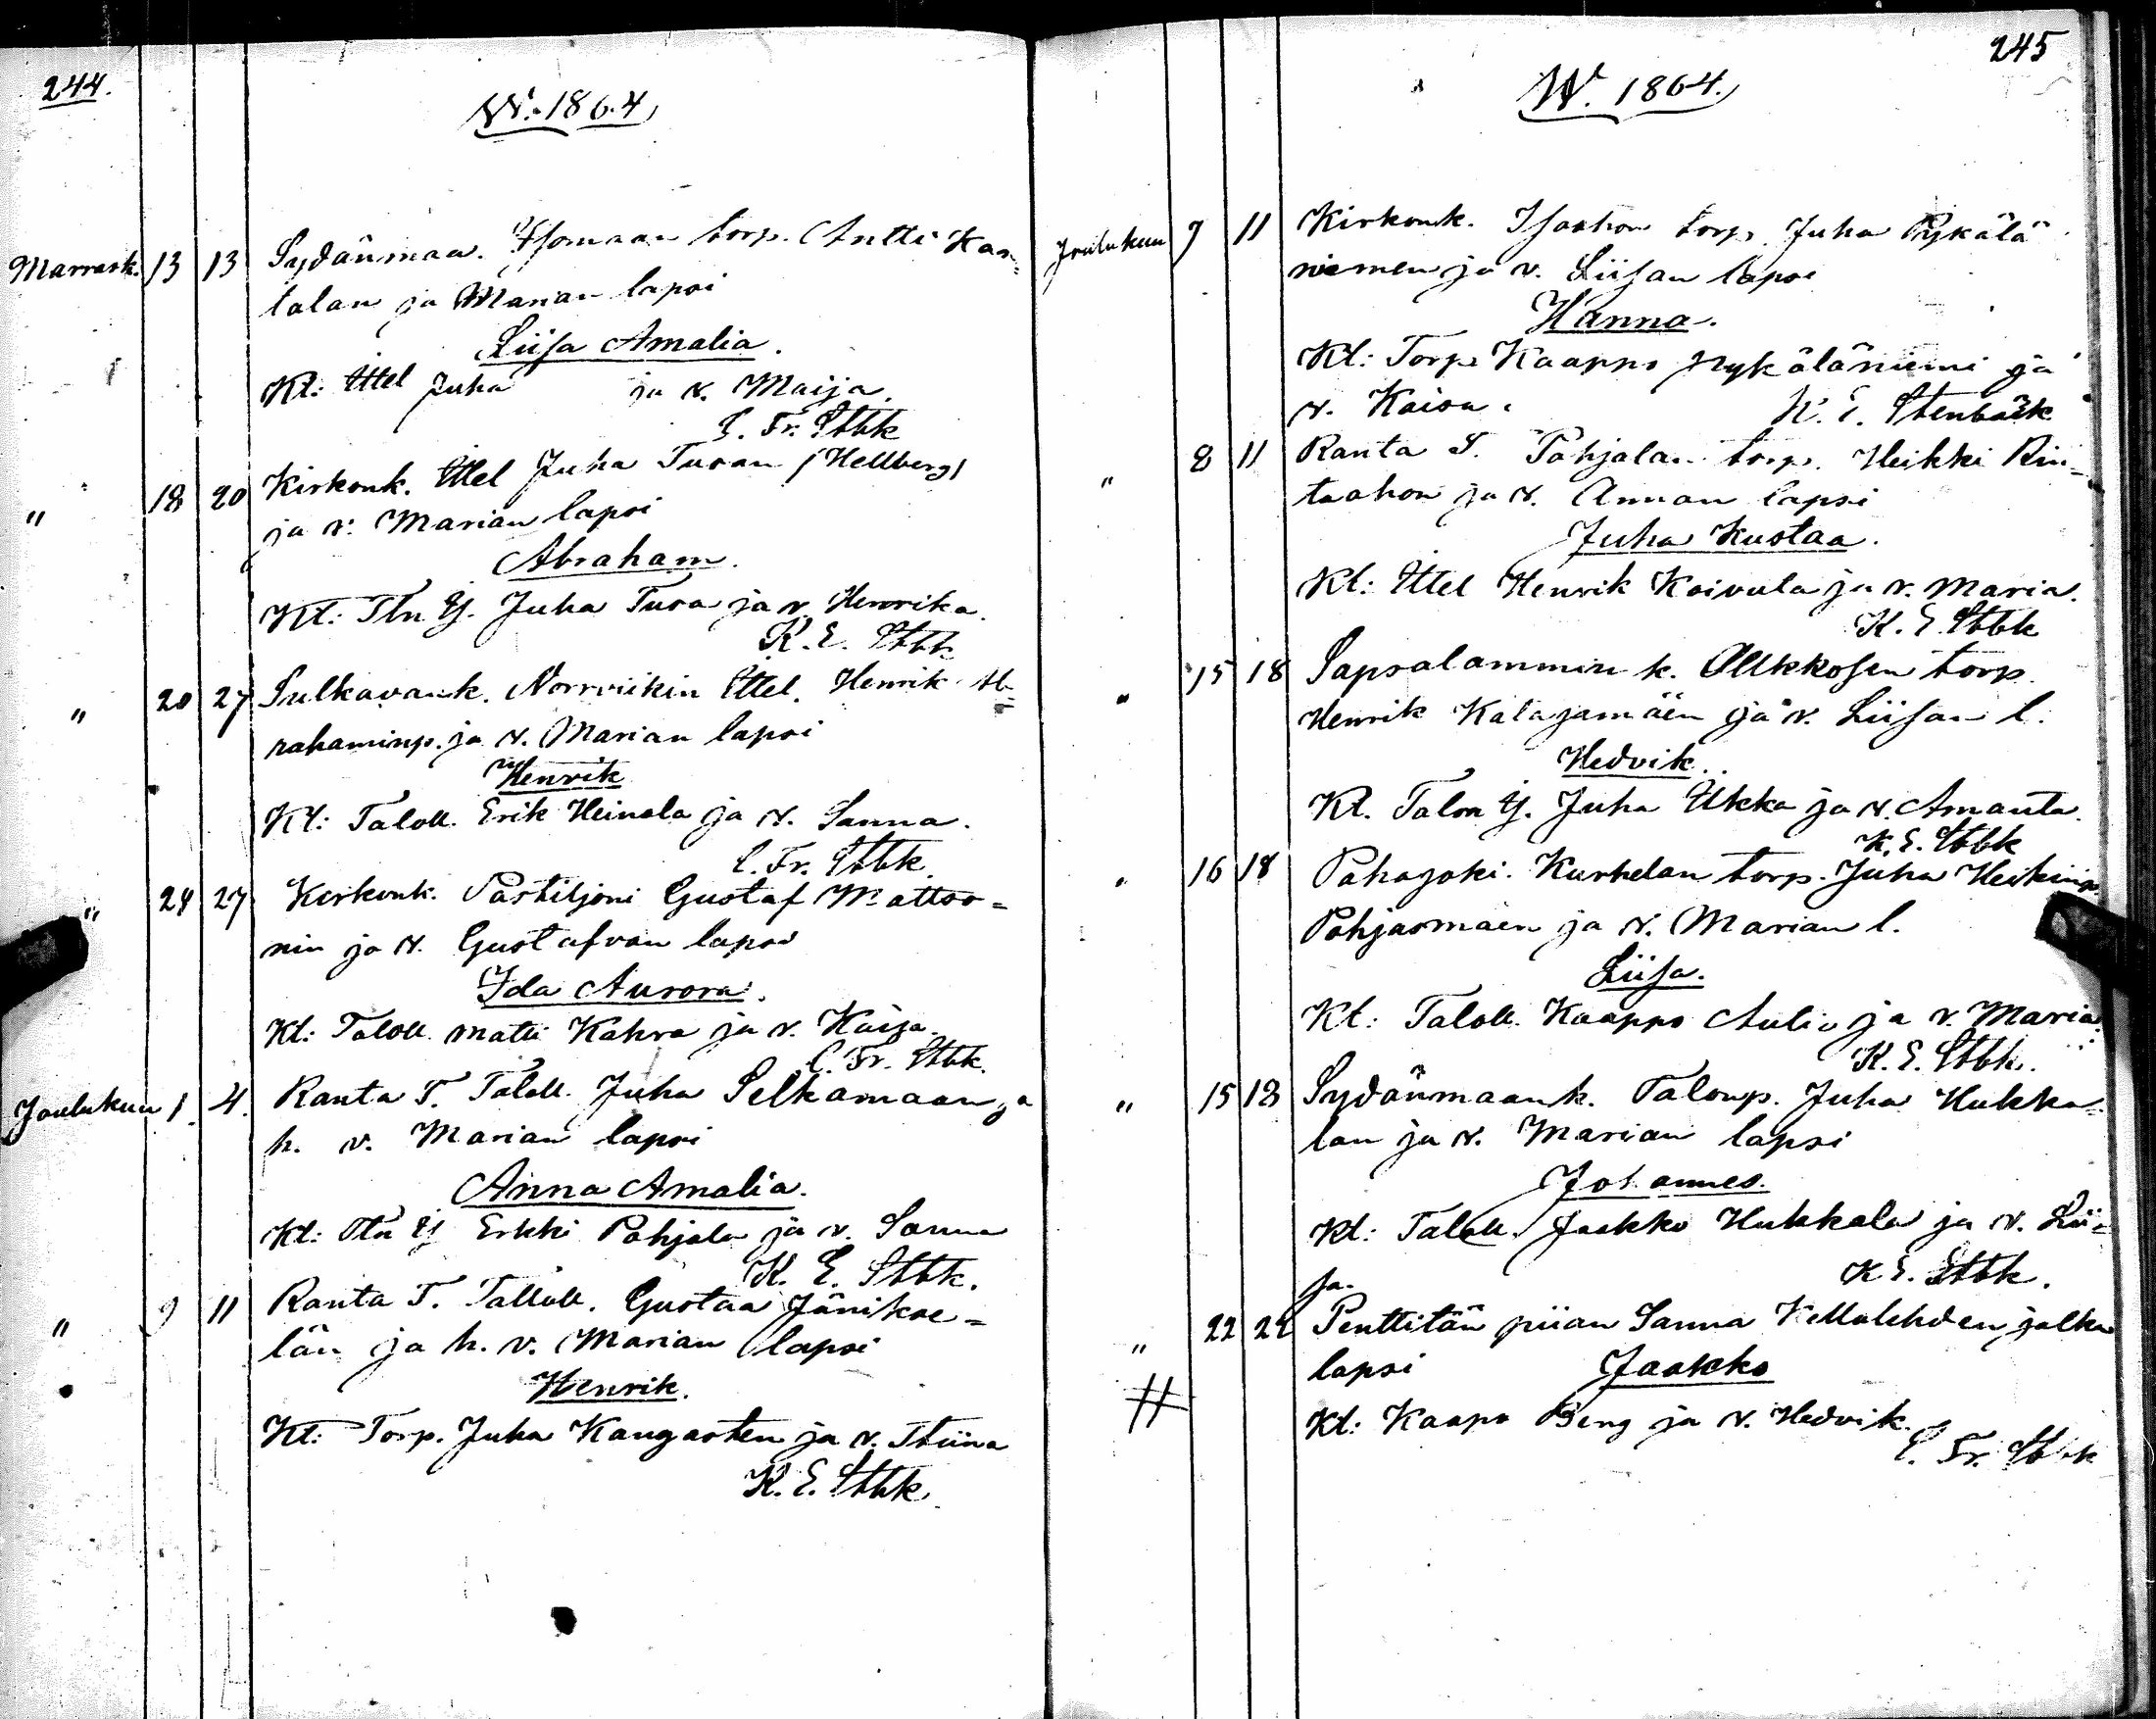 244.
W. 1864
Marrask. 13 13 Sydänmaa. Isomaan torp. Antti Kan=
talan ja Marian lapsi
Liisa Amalia.
Kt: Ittel Juha ja v. Maija.
C. Fr. Stbk
" 18 20 Kirkonk. Ittel Juha Turan (Hellberg)
ja v. Marian lapsi
Abraham.
Kt: Tln Ij. Juha Tura ja v. Henrika.
K. E. Stbk
" 20 27 Sulkavank. Norrviikin Ittel. Henrik Ab=
rahaminp. ja v. Marian lapsi
Henrik
Kt: Taloll. Erik Heinola ja v. Sanna.
C. Fr. Stbk.
" 24 27 Kirkonk. Postiljoni Gustaf Mattso=
nin ja v. Gustafvan lapsi
Ida Aurora.
Kt: Taloll. Matti Kahra ja v. Kaisa.
C. Fr. Stbk.
Joulukuu 1. 4. Ranta T. Taloll. Juha Selkämaan ja
h. v. Marian lapsi
Anna Amalia.
Kt: Ij Erkki Pohjola ja v. Sanna
K. E. Stbk.
" 9 11 Ranta T. Talloll. Gustaa Jänikoe=
län ja h. v. Marian lapsi
Henrik.
Kt: Torp. Juha Kangasten ja v. Stiina
K. E. Stbk.
245
W. 1864.
Joulukuu 7 11 Kirkonk. Isoahon torp. Juha Pykälä
niemen ja v. Liisan lapsi
Hanna.
Kt: Torp. Kaappo Pykäläniemi ja
v. Kaisa. K. E. Stenbäck
" 8 11 Ranta T. Pohjalan torp. Heikki Rin=
taahon ja v. Annan lapsi
Juha Kustaa.
Kt: Ittel Henrik Koivula ja v. Maria.
K. E. Stbk
" 15 18 Sapsalammin k. Ollikkosen torp.
Henrik Katajamäen ja v. Liisan l.
Hedvik.
Kt. Talon Ij. Juha Ukka ja v. Amanta.
K. E. Stbk
" 16 18 Pahajoki. Kurhelan torp. Juha Heikinp.
Pohjasmäen ja v. Marian l.
Liisa.
Kt: Taloll. Kaappo Aulio ja v. Maria.
K. E. Stbk.
" 15 18 Sydänmaank. Taloup. Juha Hukka=
lan ja v. Marian lapsi
Johannes.
Kt: Taloll. Jaakko Hukkala ja v. Lii=
sa. K. E. Stbk.
" 22 22 Penttilän piian Sanna Kellolehden jalka
lapsi Jaakko
# Kt: Kaapo Beng ja v. Hedvik.
C. Fr. Stbk